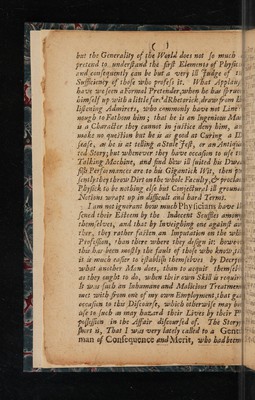 but the Generality of the World does not so much
pretend to understand the first Elements of Physick
and consequently can be but a very ill Judge of
Sufficiency of those who profess it. What Applause
have we seen a Formal Pretender, when he has
himself up with a little Rhetorick, draw from
listening Admirers, who commonly have not
nough to Fathom him; that he is an Ingenious Man
is a Character they cannot in justice deny him,
make no question but he is as good at Curing a
sease, as he is at telling a Stale Jest, or an
ted Story; but whenever they have occasion to use
Talking Machine, and find how ill suited his
fish Performances are to his Gigantick Fits, then
sently they throw Dirt on the whole Faculty, & proclaim
Physick to be nothing else but Conjectural ill
Notions wrapt up in difficult and hard Terms.
I am not ignorant how much Physicians have
sened their Esteem by the Indecent Scuffles among
themselves, and that by Inveighing one against
ther, they rather fasten an Imputation on the
Profession, than there where they design it: however
this has been mostly the fault of those who know,
it is much easier to establish themselves by
what another Man does, than to acquit
as they ought to do, when their own Skill is
It was such an Inhumane and Malicious Treatment
met with from one of my own Employment, that
occasion to this Discourse, which otherwise may be
use to such as may hazard their Lives by their
possession in the Affair discoursed of. The Story
short is, That I was very lately called to a
man of Consequence and Merit, who had been